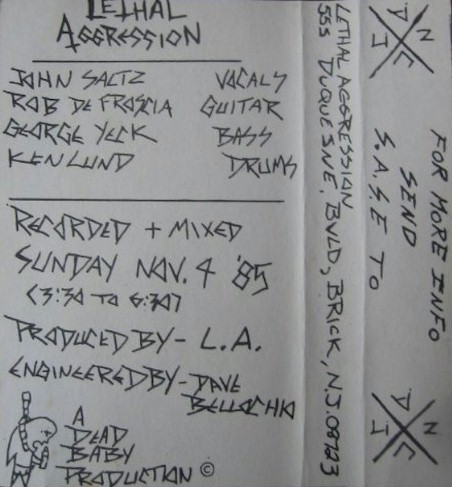 LETHAL
AGGRESSION
JOHN SALTZ VOCALS
ROB DE FROSCIA GUITAR
GEORGE YECK BASS
KEN LUND DRUMS
RECORDED + MIXED
SUNDAY NOV. 4 '85
(3:30 TO 6:30)
PRODUCED BY - L.A.
ENGINEERED BY - DAVE
BELLOCHIO
A
DEAD
BABY
PRODUCTION ©
LETHAL AGGRESSION
555 DUQUESNE, BVLD, BRICK, N.J. 08723
FOR MORE INFO
SEND
S.A.S.E TO
N J D C
N J D C